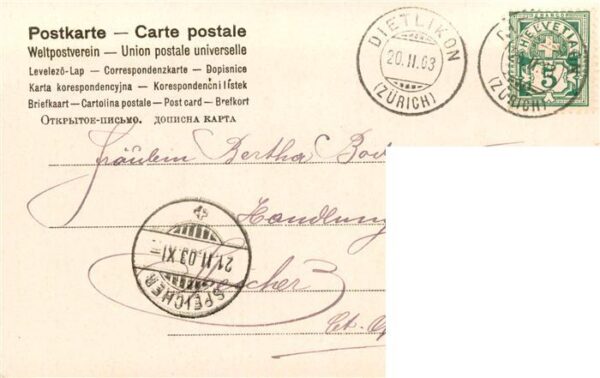 Postkarte — Carte postale
Weltpostverein — Union postale universelle
Levelező-Lap — Correspondenzkarte — Dopisnice
Karta korespondencyjna — Korespondenční lístek
Briefkaart — Cartolina postale — Post card — Brefkort
Открытое-письмо. дописна карта
DIETLIKON
20.II.03
(ZÜRICH)
HELVETIA
5
(ZÜRICH)
Fräulein Bertha
Handlung
Speicher
Ct.
21.II.03.XI
SPEICHER